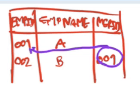 EMPID EMPNAME MGRID
001 A
002 B 001